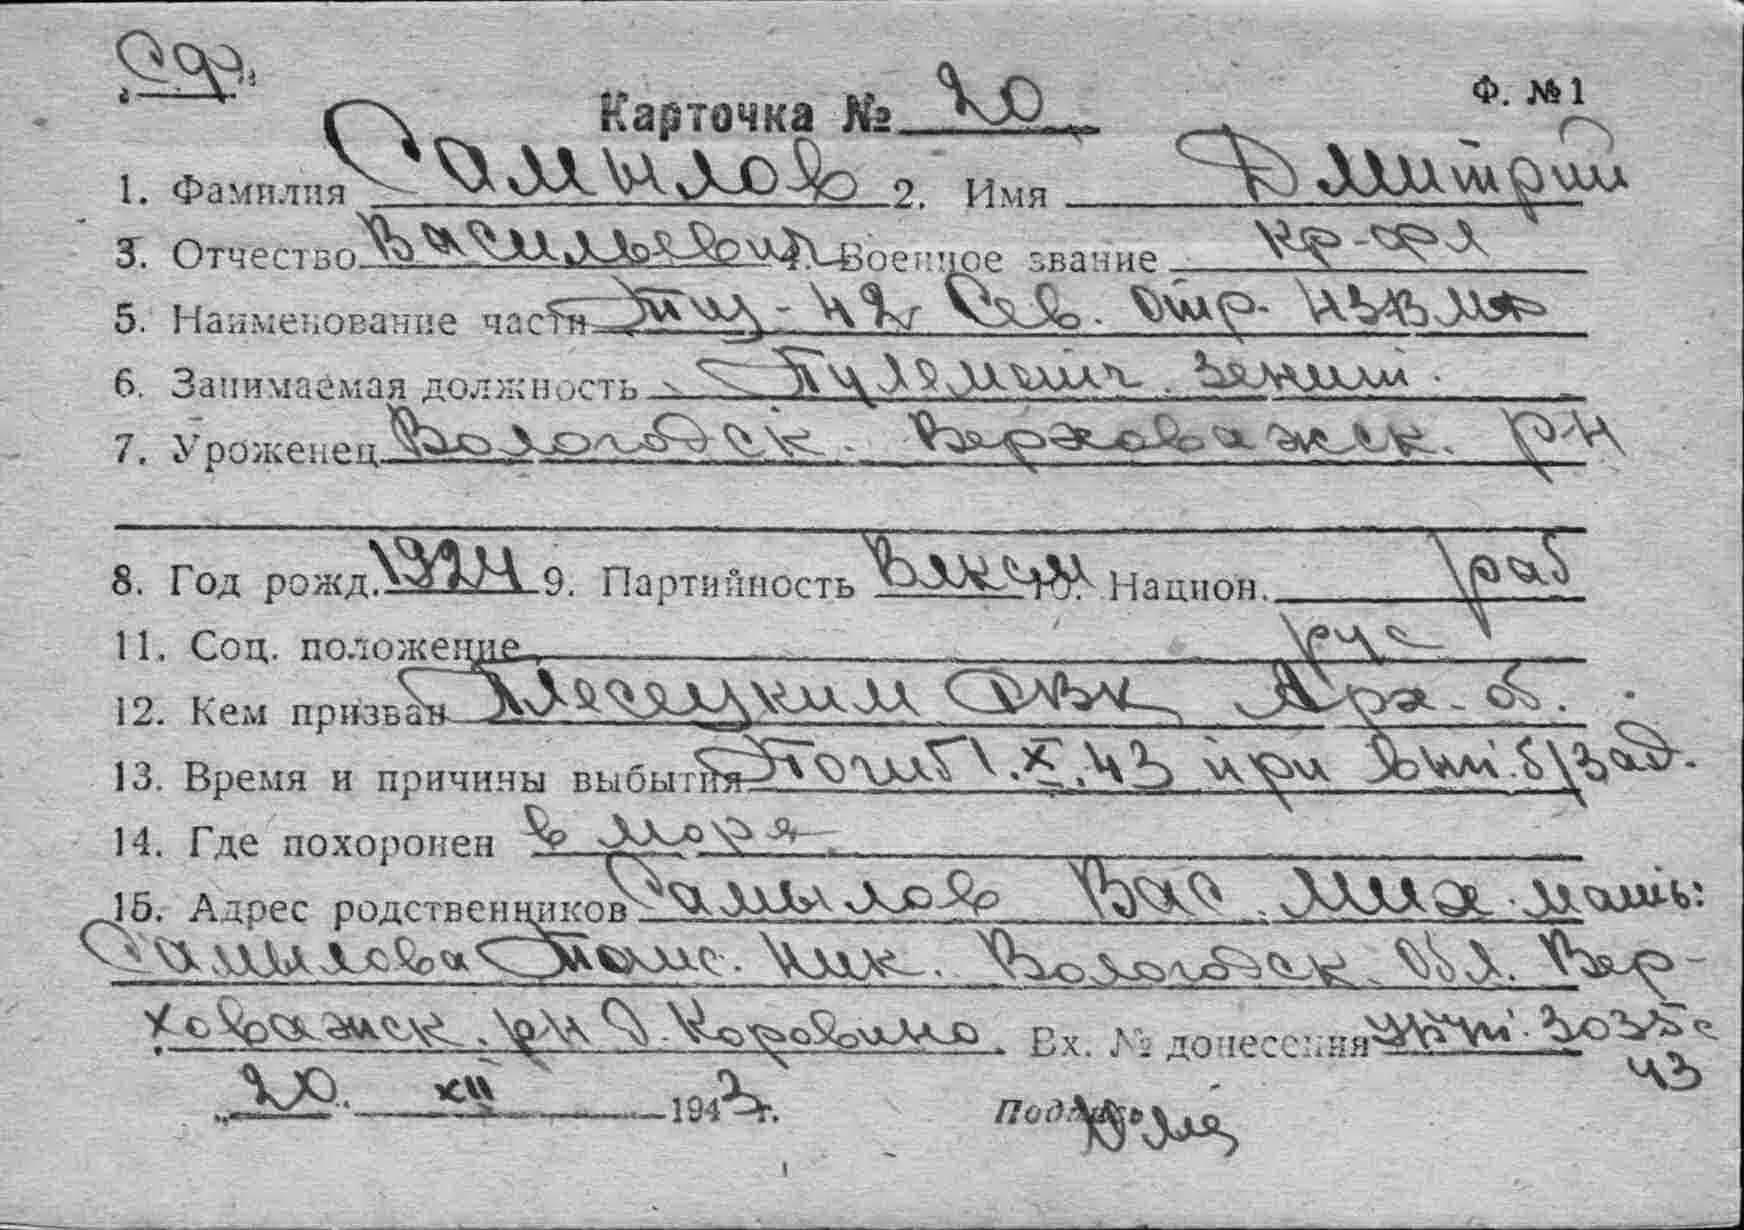 Сф.
Карточка № 20 Ф. №1
1. Фамилия Самылов 2. Имя Дмитрий
3. Отчество Васильевич 4. Военное звание кр-фл
5. Наименование части Тщ-42 Сев. отр. НЗВМФ
6. Занимаемая должность Пулеметч. зенит.
7. Уроженец Вологодск. Верховажск. р-н
8. Год рожд. 1924 9. Партийность Влксм 10. Национ. раб
11. Соц. положение рус
12. Кем призван Плесецким РВК Арх. об.
13. Время и причины выбытия Погиб 1.X.43 при вып. б/зад.
14. Где похоронен в море
15. Адрес родственников Самылов Вас. Мих. мать:
Самылова Таис. Ник. Вологодск. Обл. Вер-
ховажск. рн д. Коровино. Вх. № донесения 3035с
43
„20. XII 1943г. Подпись